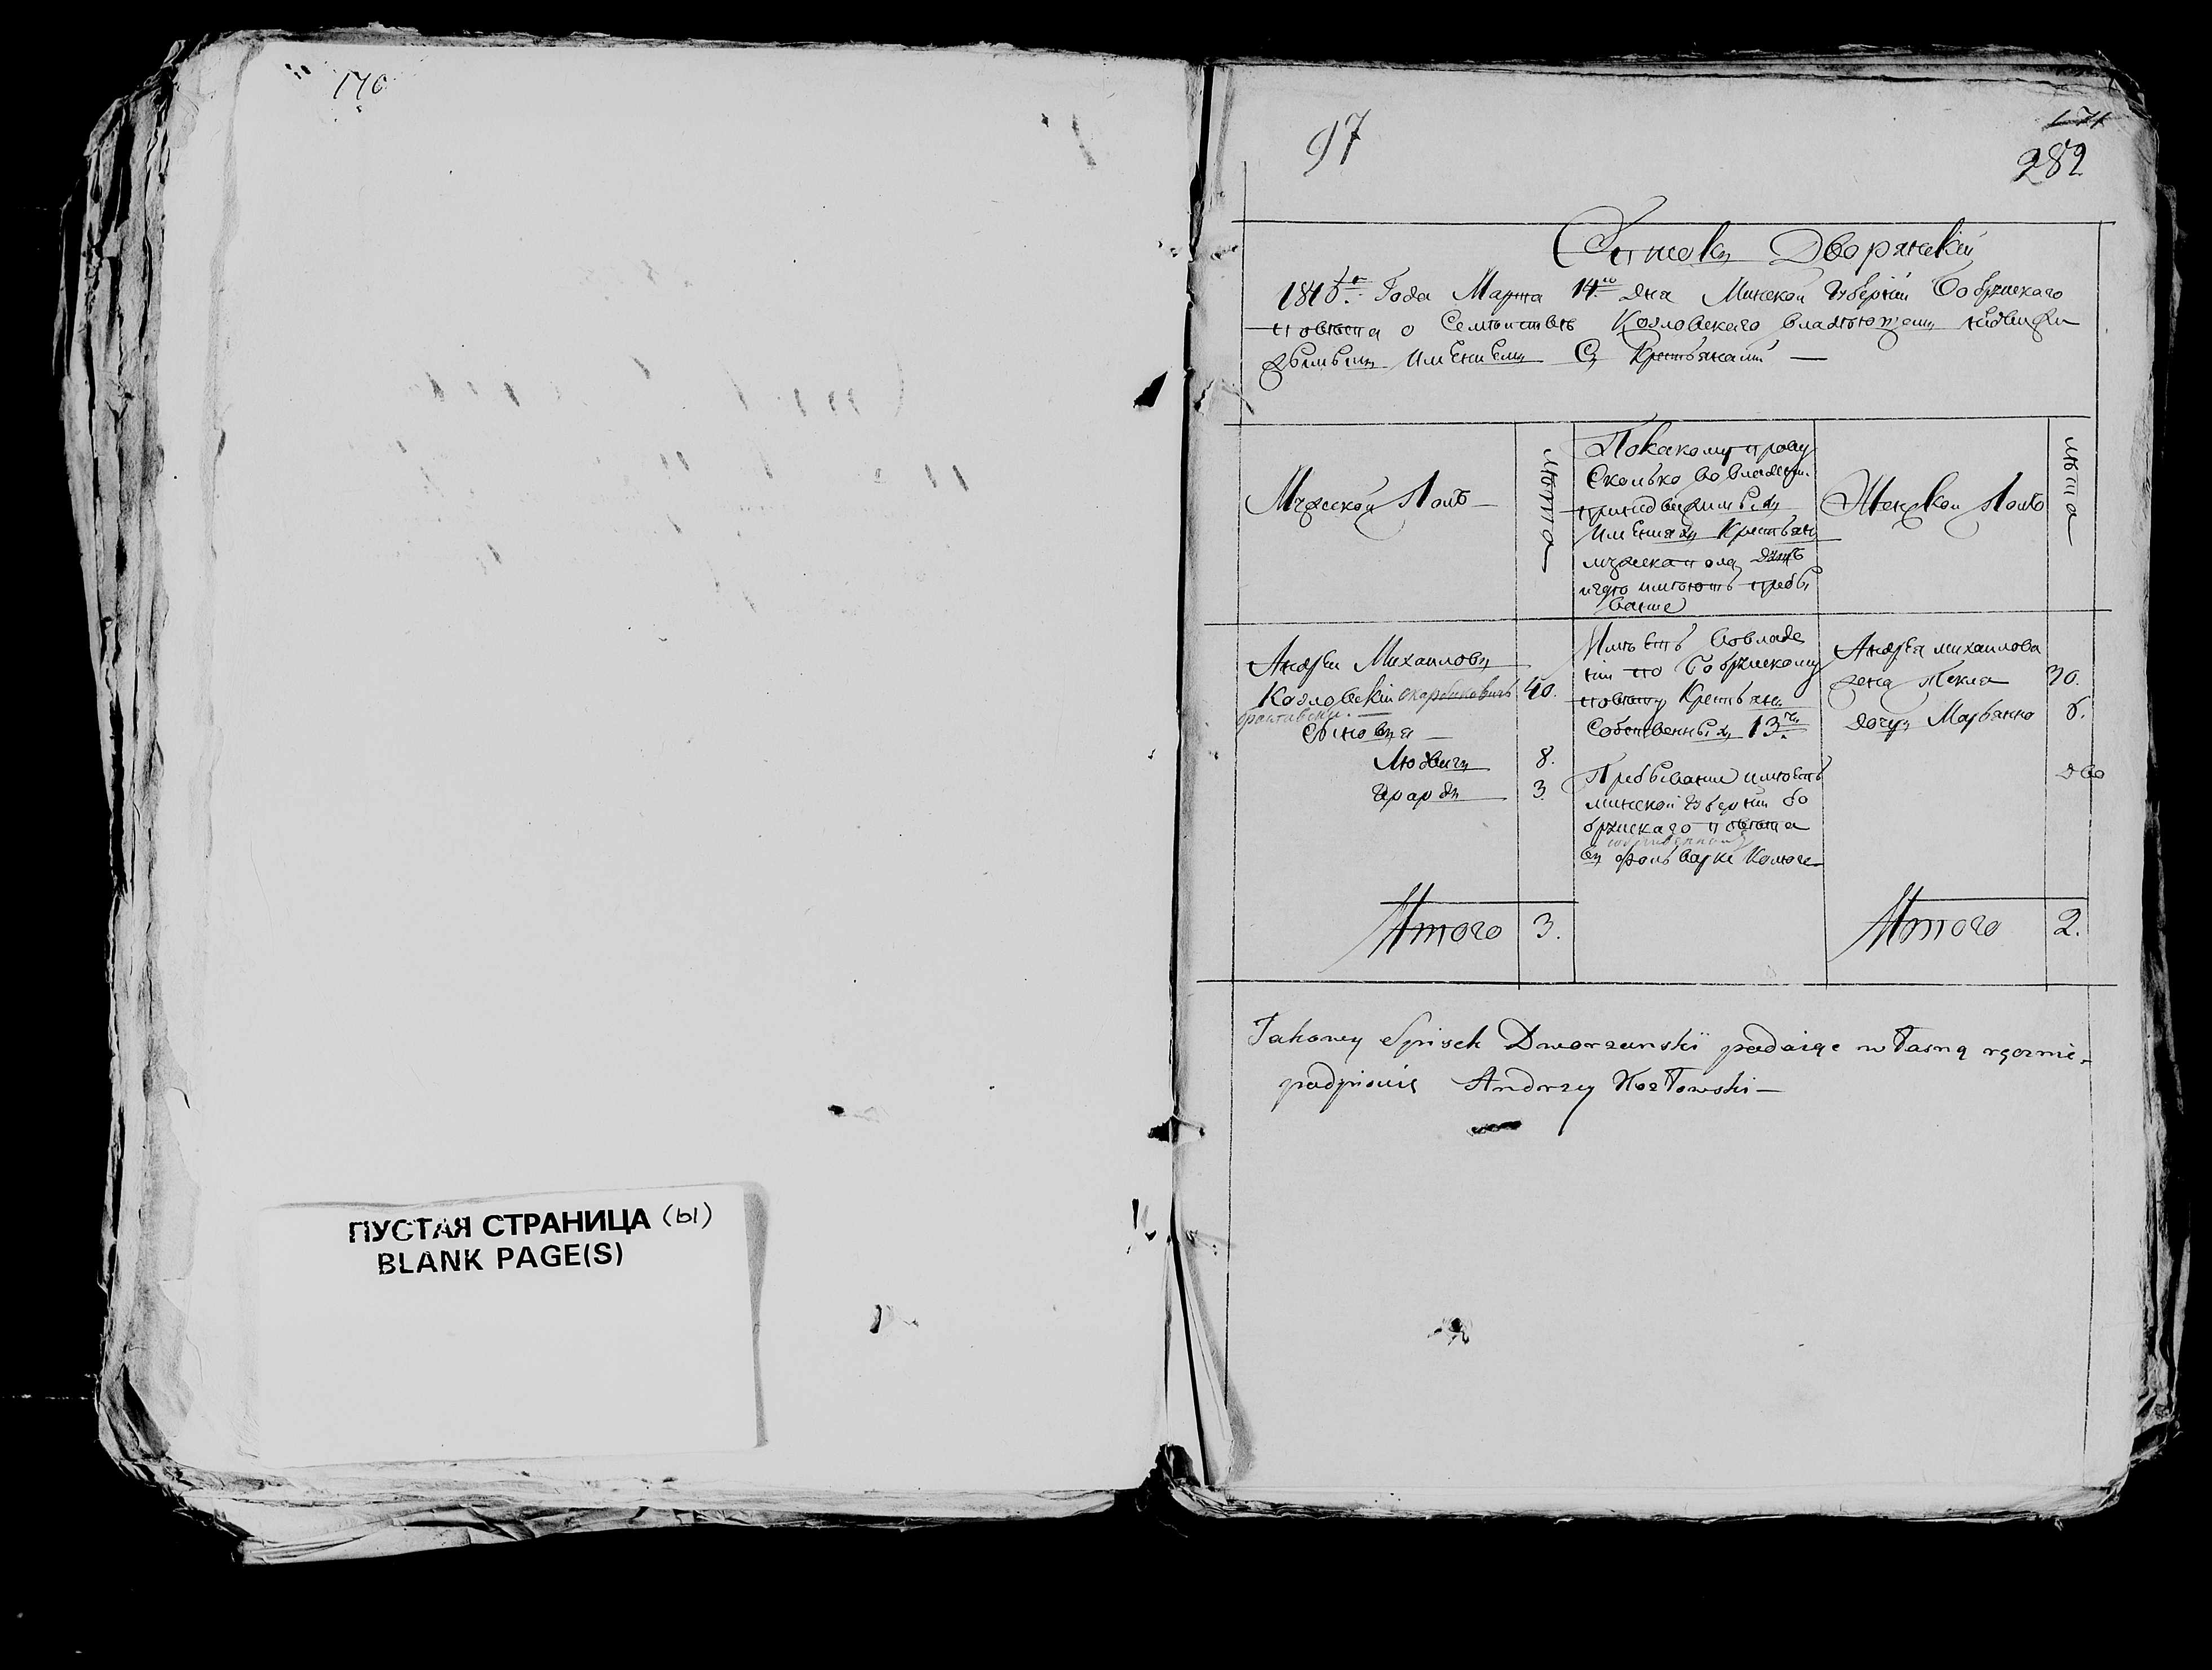 170
ПУСТАЯ СТРАНИЦА (ы)
BLANK PAGE(S)
97
171
282
Списокъ Дворянскій
1816го Года Марта 14го дня Минской Губерніи Бобруйскаго
повета о Семъистве Козловскаго владеющемъ недвижи
жимымъ имениемъ съ Крестьянами —
Мужеской полъ
лета
По какому праву
Сколько во владени
принедвижимыхъ
имнияхъ Крестьянъ
мужеска пола душъ
игде имеютъ пребы
вание
Женской полъ
лета
Андрей Михаиловъ
Козловскій скарбековичъ
40.
Сыновья —
Людвигъ 8.
Ерардъ 3.
Имееть во владе
нии по Бобрускому
повету Крестьянъ
Собственныхъ 13ть
Пребывание имееть
минской губернии бо
брускаго повета
въ фольварке Колюже
Андрея михаилова
жена текля 30.
дочъ Марьянна 6.
две
Итого 3.
Итого 2.
Takowy Spisek Dworzanski podaiąc własną ręcznie
podpisuię Andrzey Kozłowski —